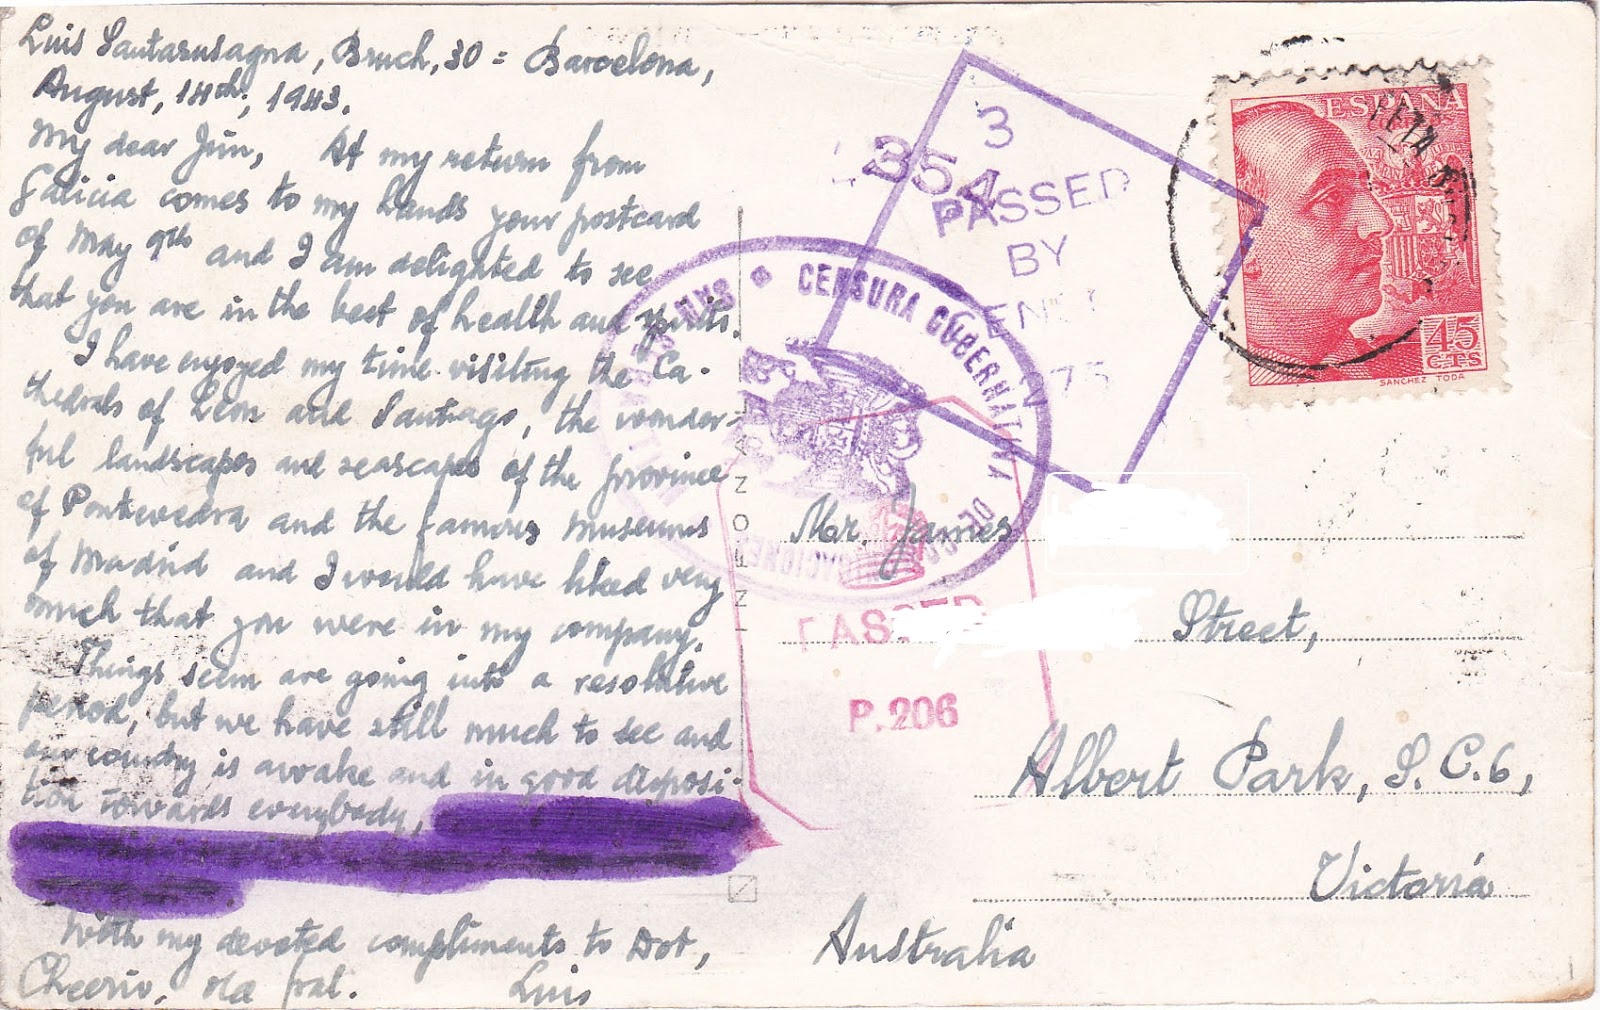 Luis Santarusagna, Bruch, 30 = Barcelona,
August, 14th, 1943.
My dear Jim, At my return from
Galicia comes to my hands your postcard
of May 9th and I am delighted to see
that you are in the best of health and spirits.
I have enjoyed my time visiting the Ca-
thedrals of León and Santiago, the wonder-
ful landscapes and seascapes of the province
of Pontevedra and the famous museums
of Madrid and I would have liked very
much that you were in my company.
Things seem are going into a resolutive
period, but we have still much to see and
our country is awake and in good disposi-
tion towards everybody,
With my devoted compliments to Dot,
Cheerio, old pal. Luis
3
354
PASSED
BY
CENSURA GUBERNATIVA
DE
ESPAÑA
45
CTS
SANCHEZ TODA
Mr. James
Street,
PASSED
P.206
Albert Park, S.C.6,
Victoria
Australia